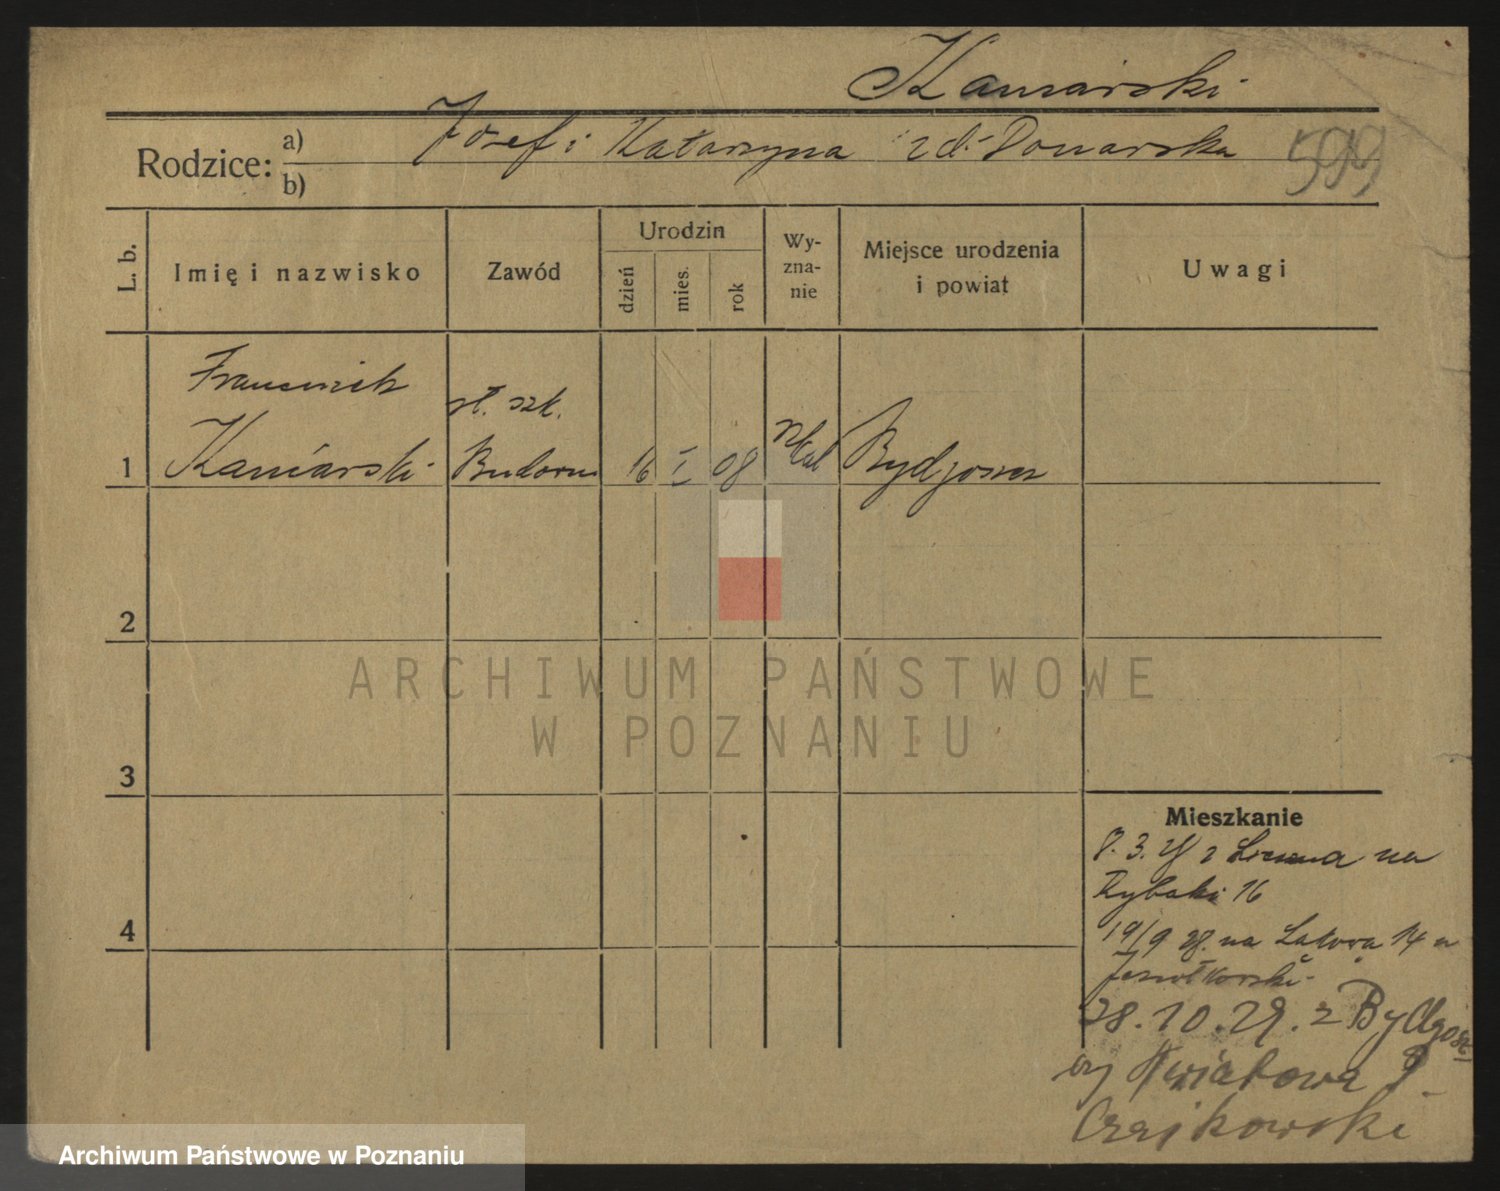 Kaniarski
Rodzice: a) Józef i Katarzyna zd. Donarska
b)
599
L. b.
Imię i nazwisko
Zawód
Urodzin
dzień
mies.
rok
Wy-
zna-
nie
Miejsce urodzenia
i powiat
Uwagi
Franciszek
st. szk.
1 Kaniarski Budown 16 I 08 rzkat Bydgoszcz
2
3
4
ARCHIWUM PAŃSTWOWE
W POZNANIU
Mieszkanie
8. 3. 28 z na
Rybaki 16
19/9 28. na Łąkowa 14 u
28.10.29. z Bydgosz
czy Kwiatowa 8
Czajkowski
Archiwum Państwowe w Poznaniu